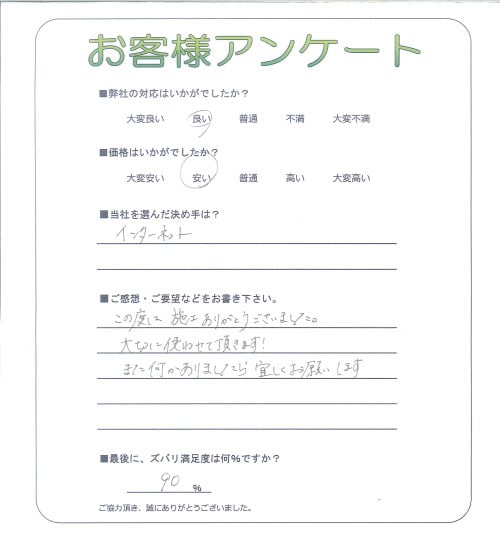 お客様アンケート
■弊社の対応はいかがでしたか？
大変良い 良い 普通 不満 大変不満
■価格はいかがでしたか？
大変安い 安い 普通 高い 大変高い
■当社を選んだ決め手は？
インターネット
■ご感想・ご要望などをお書き下さい。
この度は 施工ありがとうございました。
大切に使わせて頂きます！
また何かありましたら宜しくお願いします
■最後に、ズバリ満足度は何％ですか？
90 ％
ご協力頂き、誠にありがとうございました。